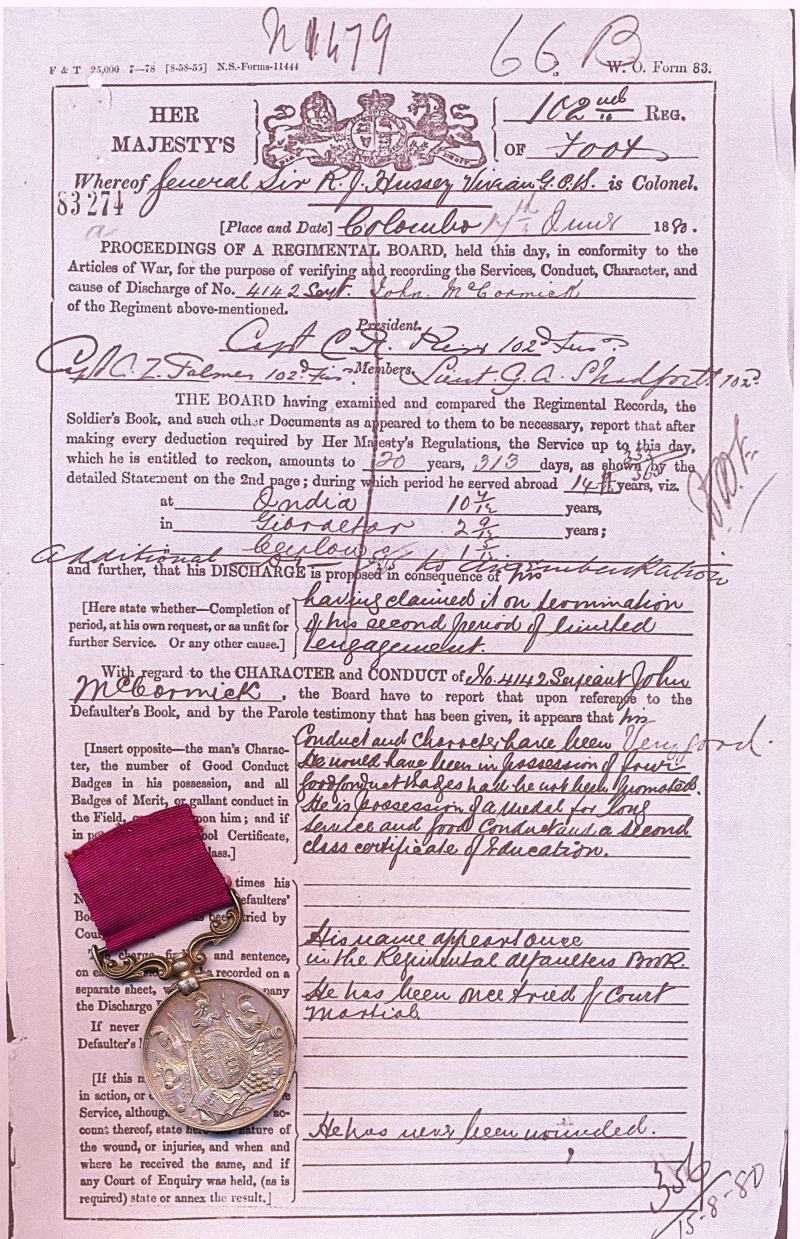 N 1479
66 B
F & T 25,000 7—78 [8-58-55] N.S.-Forms-11444 W. O. Form 83.
HER MAJESTY'S 102nd REG.
OF Foot
Whereof General Sir R. J. Hussey Vivian G.C.B. is Colonel.
83274
[Place and Date] Colombo 17th June 1880.
PROCEEDINGS OF A REGIMENTAL BOARD, held this day, in conformity to the
Articles of War, for the purpose of verifying and recording the Services, Conduct, Character, and
cause of Discharge of No. 4142 Sergt. John McCormick
of the Regiment above-mentioned.
President.
Capt C. R. 102d Fus.
Capt C. Z. Palmer 102d Fus. Members. Lieut. G. A. Shadforth 102d
THE BOARD having examined and compared the Regimental Records, the
Soldier's Book, and such other Documents as appeared to them to be necessary, report that after
making every deduction required by Her Majesty's Regulations, the Service up to this day,
which he is entitled to reckon, amounts to 20 years, 313 days, as shown by the
detailed Statement on the 2nd page; during which period he served abroad 14 years, viz.
at India 10 years,
in Gibraltar 2 9/12 years;
Ceylon 1
additional to disembarkation
and further, that his DISCHARGE is proposed in consequence of his
[Here state whether—Completion of period, at his own request, or as unfit for further Service. Or any other cause.]
having claimed it on termination
of his second period of limited
engagement.
With regard to the CHARACTER and CONDUCT of No. 4142 Sergeant John
McCormick, the Board have to report that upon reference to the
Defaulter's Book, and by the Parole testimony that has been given, it appears that his
[Insert opposite—the man's Character, the number of Good Conduct
Badges in his possession, and all
Badges of Merit, or gallant conduct in
the Field, upon him; and if
in Certificate,
Conduct and Character have been Very good.
He would have been in possession of four
good conduct badges had he not been promoted.
He is possession of a medal for long
service and good Conduct and a second
class certificate of Education.
times his
tried by
and sentence,
recorded on a
separate sheet,
the Discharge
His name appears once
in the Regimental defaulters Book.
He has been once tried by Court
Martial.
If never
Defaulter's
[If this
in action, or
Service, although
count thereof, state nature of
the wound, or injuries, and when and
where he received the same, and if
any Court of Enquiry was held, (as is
required) state or annex the result.]
He has never been wounded.
356
15-8-80